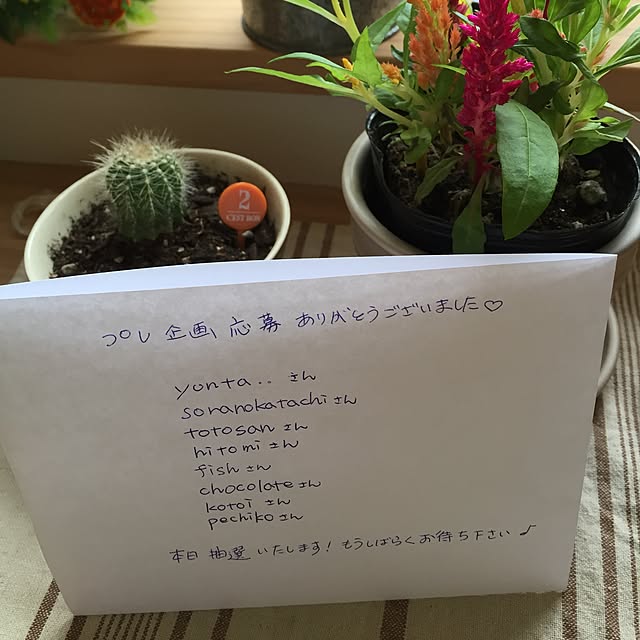 2
C'EST BON
プレ企画応募ありがとうございました♡
yunta.. さん
soranokatachiさん
totosanさん
hitomiさん
fishさん
chocolateさん
kotoiさん
pechikoさん
本日抽選いたします!もうしばらくお待ち下さい♪